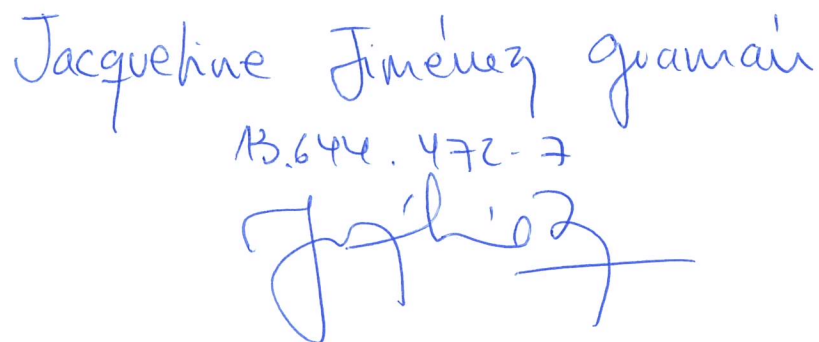 Jacqueline Jiménez Guamán
13.644.472-7